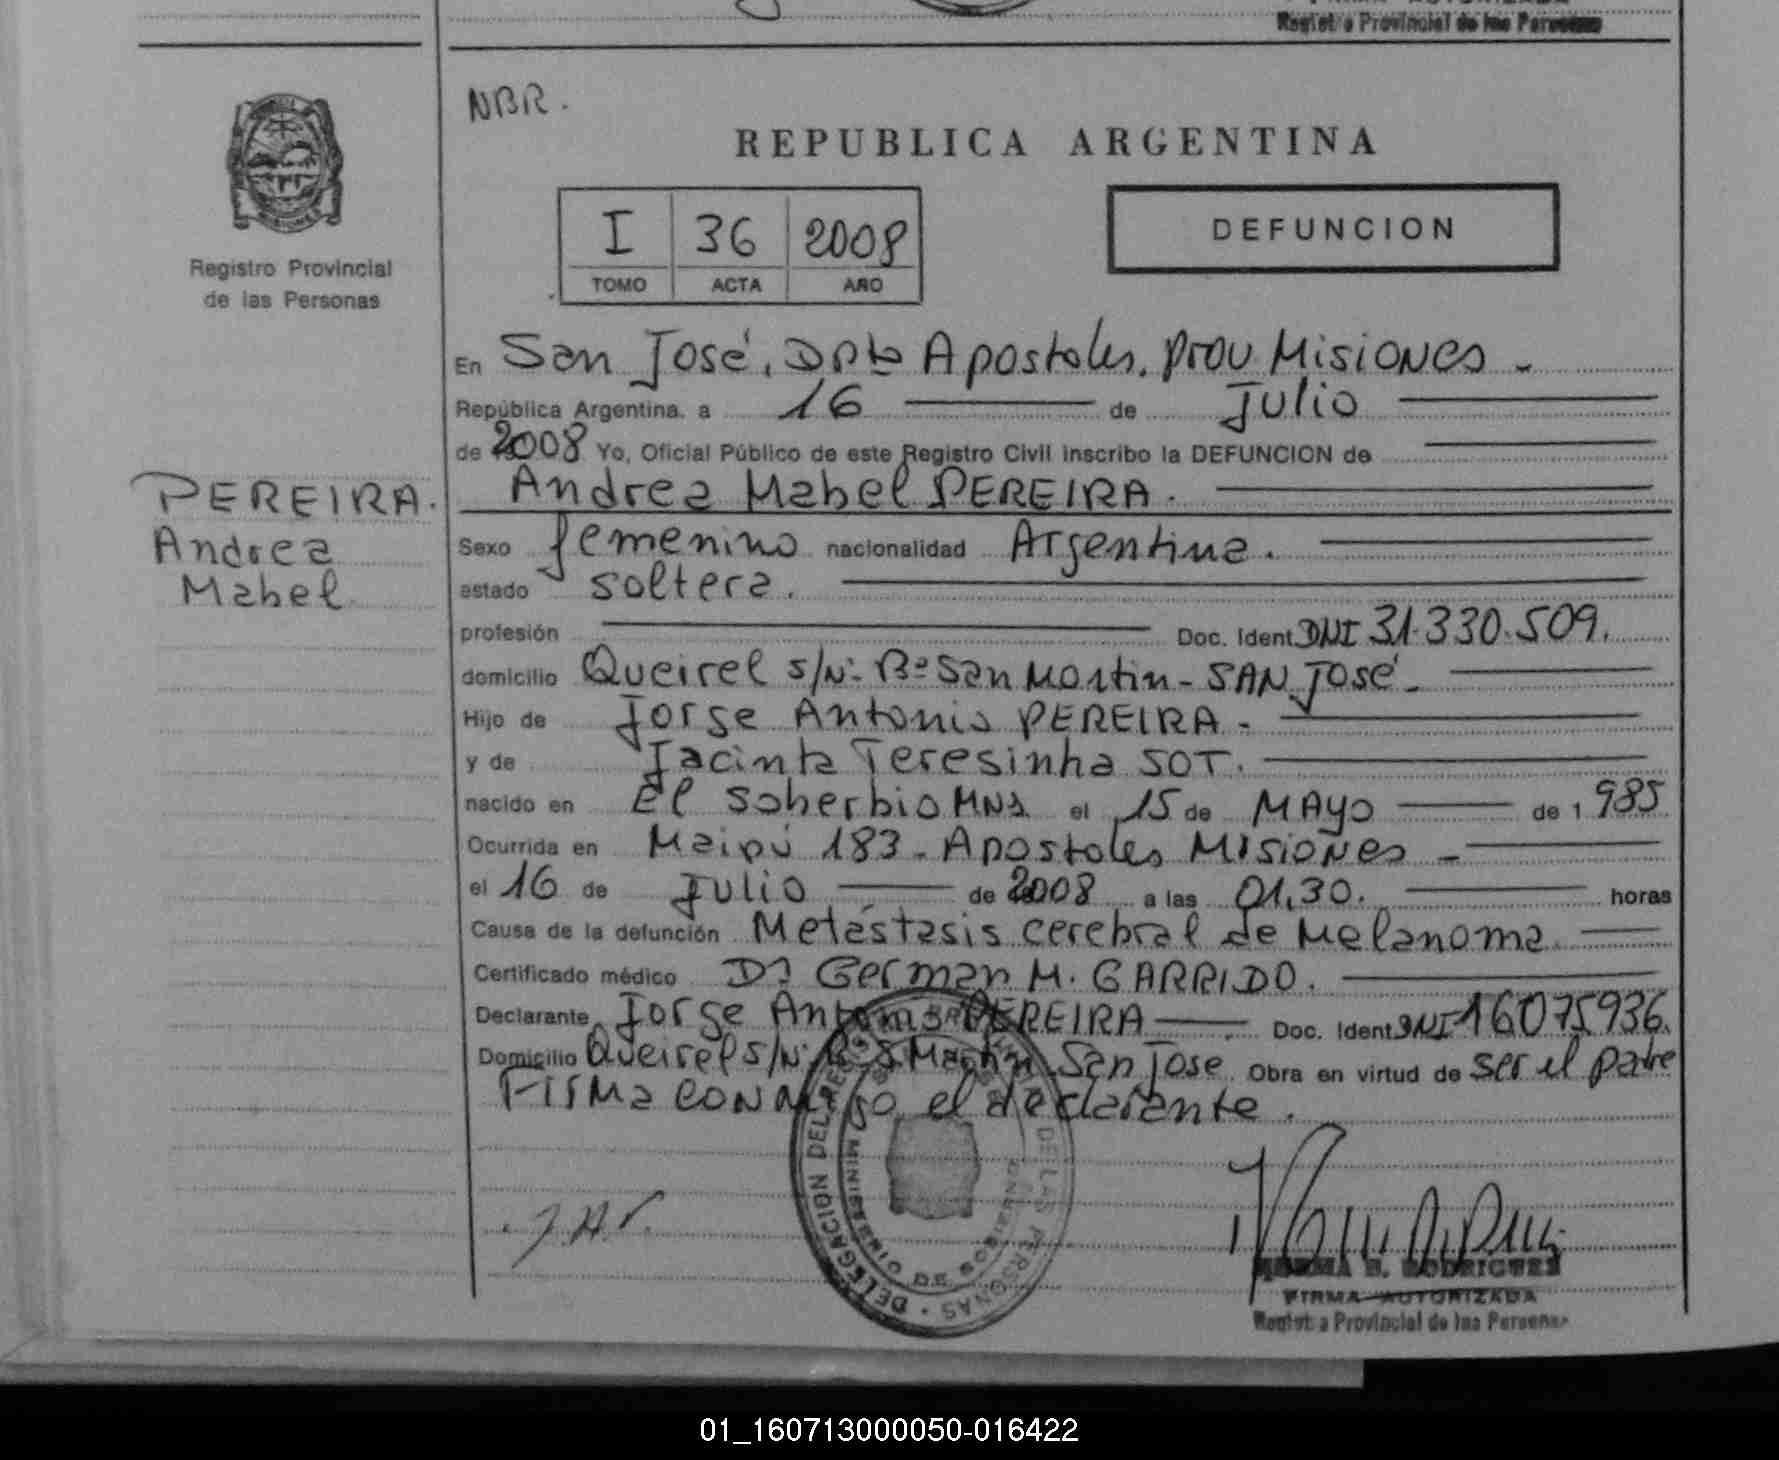 Registro Provincial de las Personas
NBR.
REPUBLICA ARGENTINA
I 36 2008
TOMO ACTA AÑO
DEFUNCION
Registro Provincial
de las Personas
En San José, Dpto Apostoles, Prov Misiones -
República Argentina, a 16 de Julio
de 2008 Yo, Oficial Público de este Registro Civil inscribo la DEFUNCION de
PEREIRA.
Andrea
Mabel
Andrea Mabel PEREIRA.
Sexo femenino nacionalidad Argentina.
estado soltera.
profesión Doc. Ident DNI 31.330.509.
domicilio Queirel s/Nº Bº San Martin - SAN JOSÉ -
Hijo de Jorge Antonio PEREIRA -
y de Jacinta Teresinha SOT.
nacido en El Soberbio MNS el 15 de MAYO de 1 985
Ocurrida en Maipú 183 - Apostoles Misiones -
el 16 de Julio de 2008 a las 01,30. horas
Causa de la defunción Metástasis cerebral de Melanoma
Certificado médico Dr German M. GARRIDO.
Declarante Jorge Antonio PEREIRA Doc. Ident DNI 16075936.
Domicilio Queirel s/Nº Bº S Martin San Jose Obra en virtud de ser el padre
Firma conmigo el declarante.
J.A.P.
DELEGACION DEL REGISTRO DE LAS PERSONAS
MINISTERIO DE GOBIERNO
NORMA B. RODRIGUEZ
FIRMA AUTORIZADA
Registro Provincial de las Personas
01_160713000050-016422